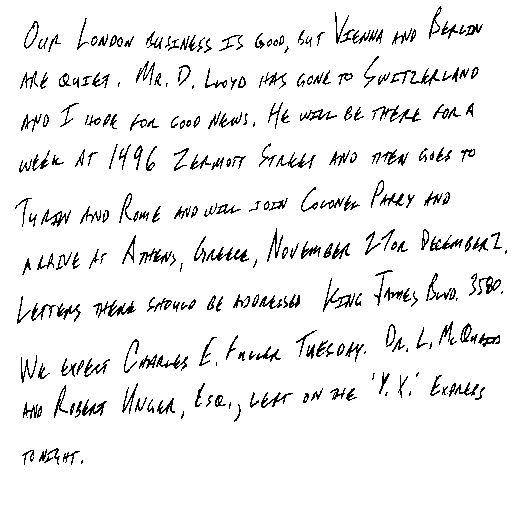 OUR LONDON BUSINESS IS GOOD, BUT VIENNA AND BERLIN
ARE QUIET. MR. D. LLOYD HAS GONE TO SWITZERLAND
AND I HOPE FOR GOOD NEWS. HE WILL BE THERE FOR A
WEEK AT 1496 ZERMOTT STREET AND THEN GOES TO
TURIN AND ROME AND WILL JOIN COLONEL PARRY AND
ARRIVE AT ATHENS, GREECE, NOVEMBER 27 OR DECEMBER 2.
LETTERS THERE SHOULD BE ADDRESSED KING JAMES BLVD. 3580.
WE EXPECT CHARLES E. FULLER TUESDAY. DR. L. MCQUAID
AND ROBERT UNGER, ESQ., LEFT ON THE 'Y.X.' EXPRESS
TONIGHT.